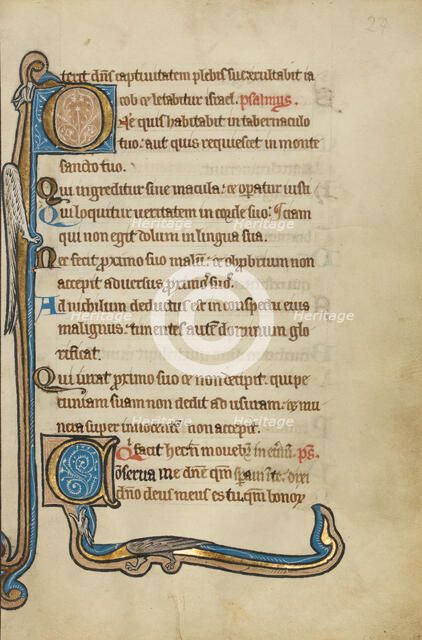 27
terit dn̄s captiuitatem plebis sue exultabit ia
cob ⁊ letabitur israel. psalmus.
Dn̄e quis habitabit in tabernaculo
tuo: aut quis requiescet in monte
sancto tuo.
Qui ingreditur sine macula: ⁊ opatur iusti
Qui loquitur ueritatem in corde suo: ciam
qui non egit dolum in lingua sua.
Nec fecit proximo suo malū: ⁊ obprbrium non
accepit aduersus proximos suos.
Ad nichilum deductus est in conspectu eius
malignus: timentes autē dominum glo
rificat.
Qui iurat proximo suo ⁊ non decipit: qui pe
cuniam suam non dedit ad usuram: ⁊ mu
nera super innocentē non accepit.
Qi facit hec: nō mouebit̄ in etnū. ps.
Conserua me dn̄e qm̄ speraui in te: dixi
dn̄o deus meus es tu: qm̄ bonor
Heritage
Heritage
Heritage
Heritage